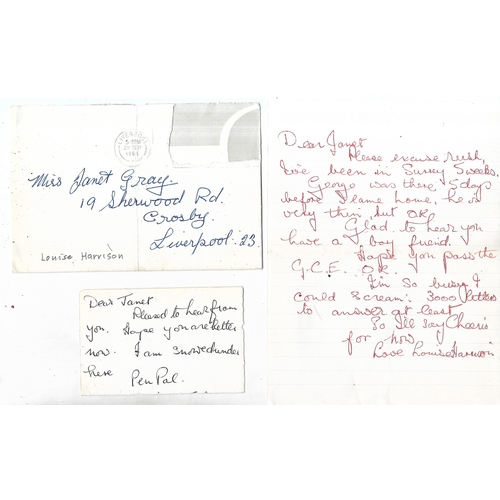 LIVERPOOL
1964
Miss Janet Gray.
19 Sherwood Rd.
Crosby.
Liverpool. 23.
Louise Harrison
Dear Janet
Pleased to hear from
you. Hope you are better
now. I am snowed under
here Pen Pal.
Dear Janet
Please excuse rush,
I've been in Surrey 3 weeks.
George was there 5 days
before I came home, he is
very thin, but OK.
Glad to hear you
have a boy friend.
Hope you pass the
G.C.E. OK.
I'm so busy I
could scream: 3000 letters
to answer at least
So I'll say Cheerio
for now
Love Louise Harrison